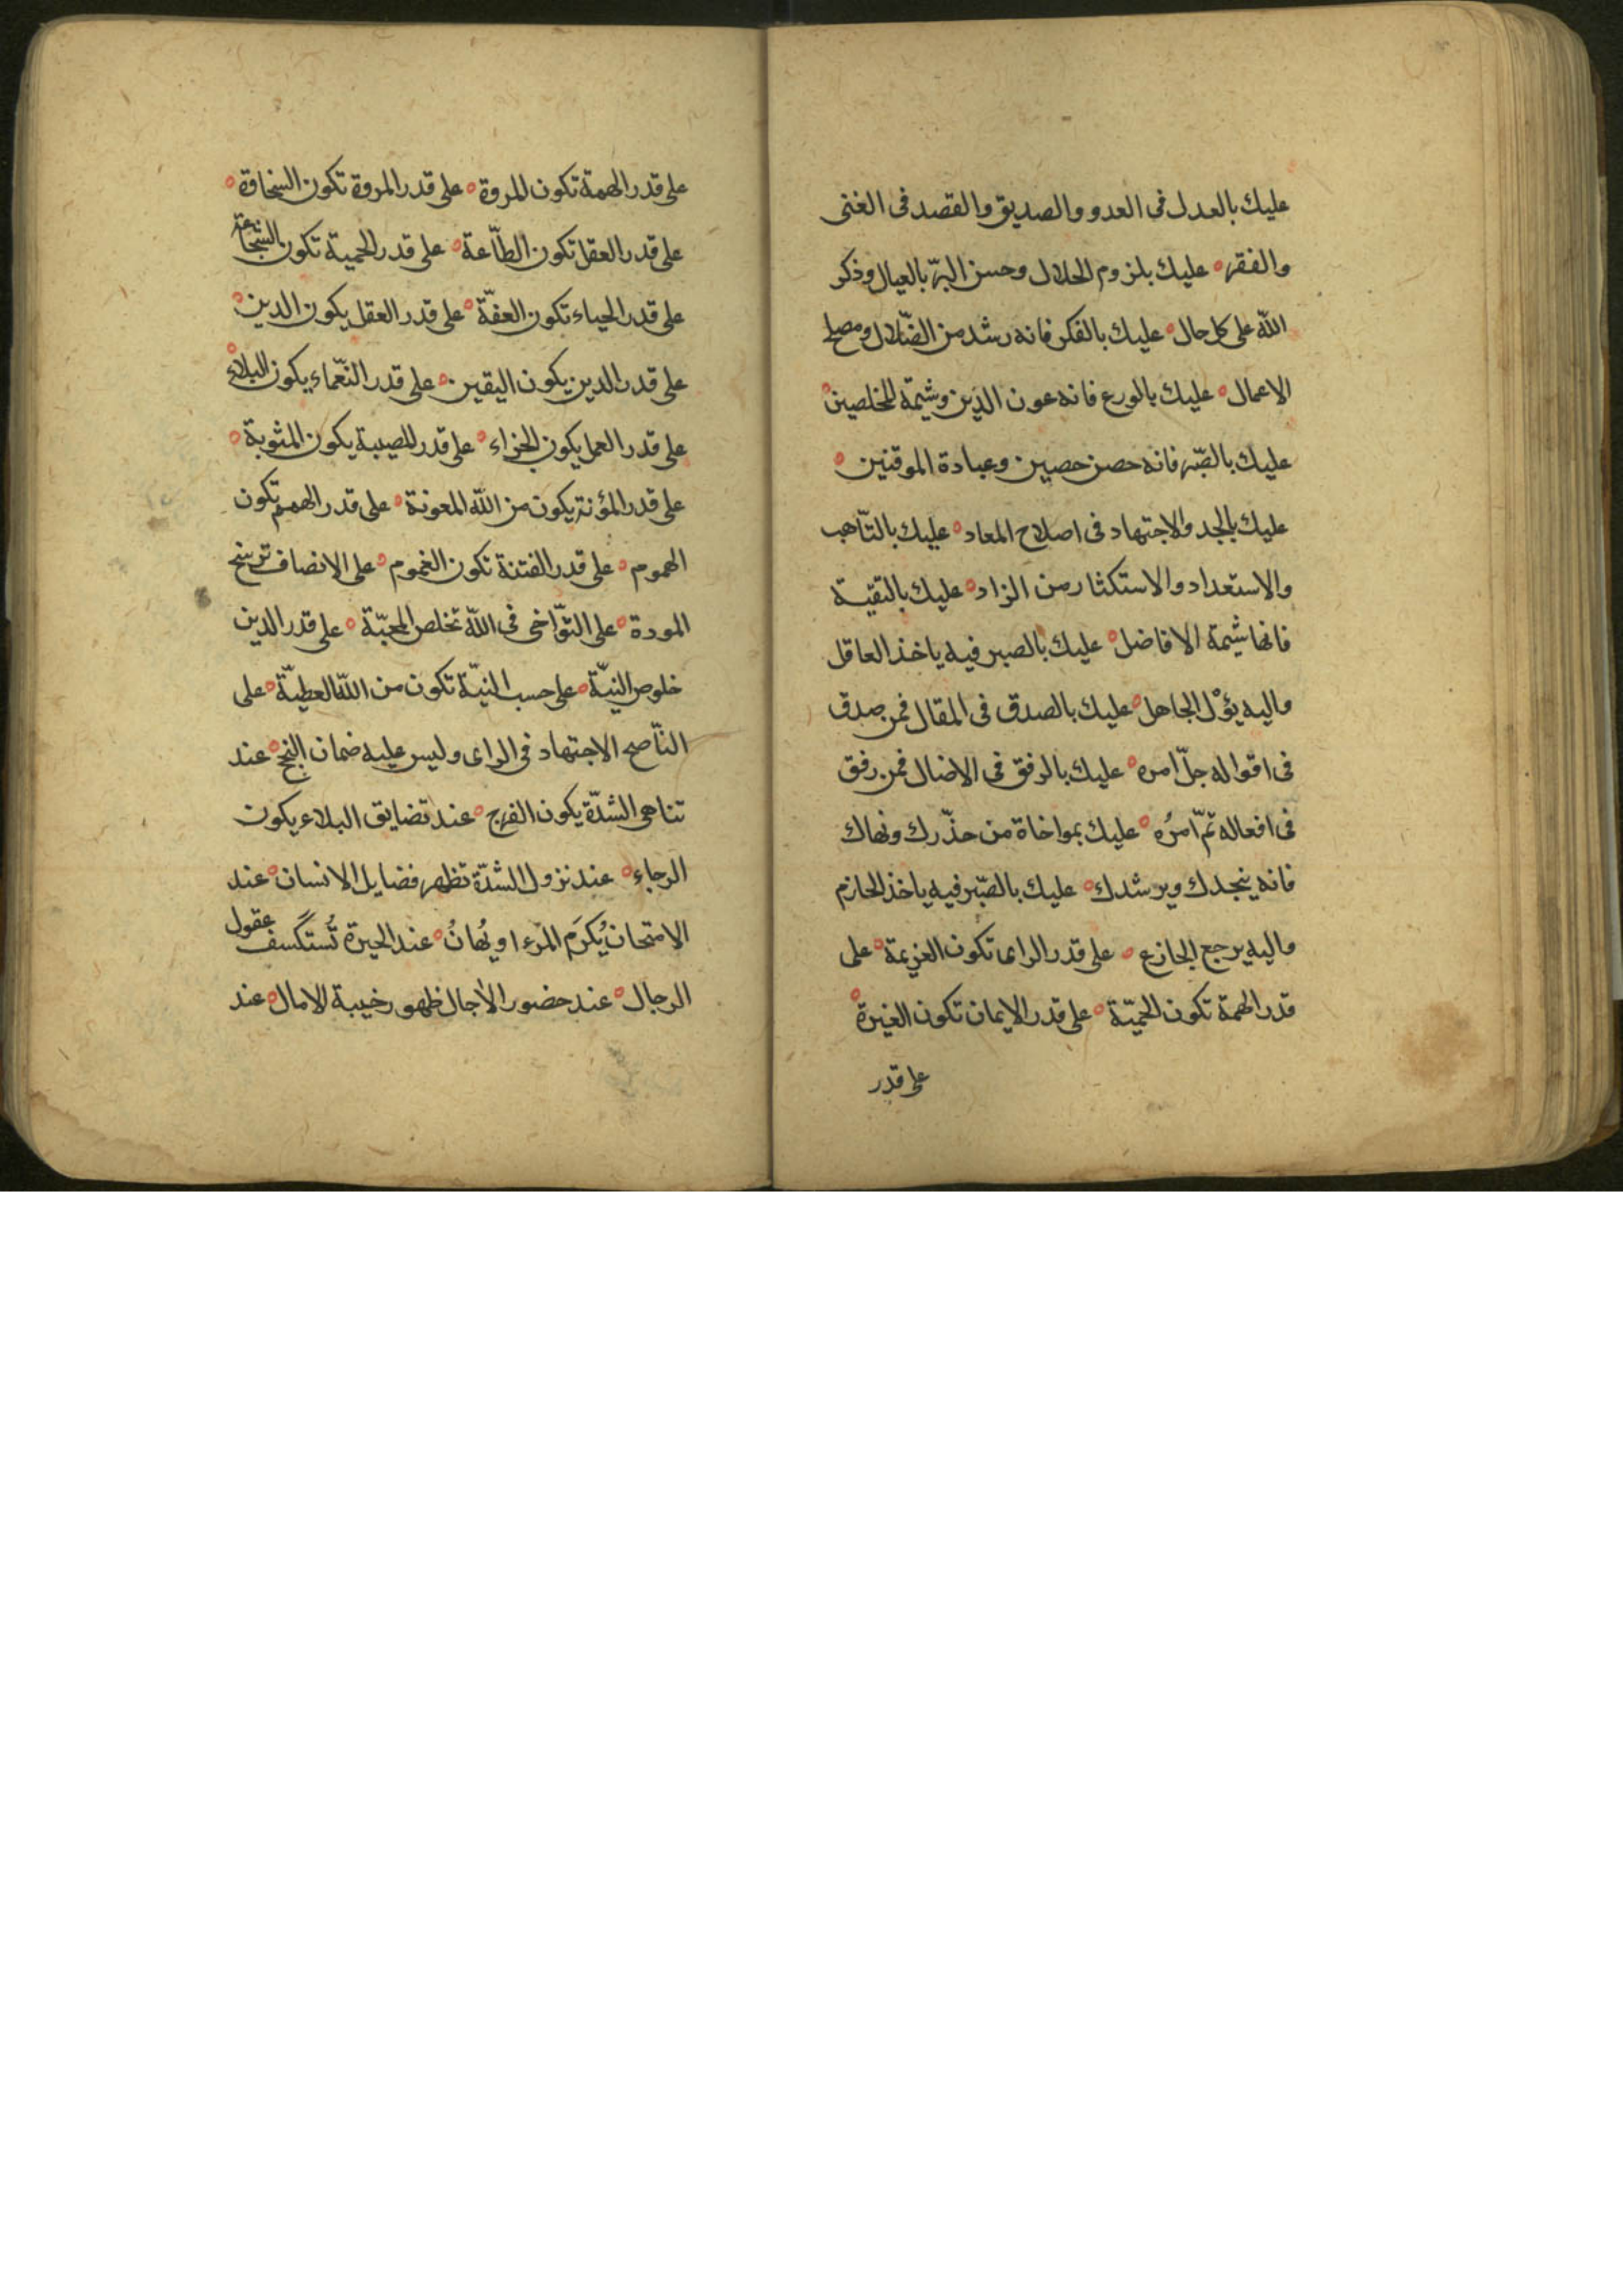 عليك بالعدل فى العدو والصديق والقصد فى الغنى
والفقر ه عليك بلزوم الحلال وحسن البرّ بالعيال وذكر
اللّه على كل حال ه عليك بالفكر فانه رشد من الضّلال ومصلح
الاعمال ه عليك بالورع فانه عون الدّين وشيمة المخلصين ه
عليك بالصّبر فانه حصن حصين وعبادة الموقنين ه
عليك بالجد والاجتهاد فى اصلاح المعاد ه عليك بالتّأهب
والاستعداد والاستكثار من الزاد ه عليك بالتقيّة
فانها شيمة الافاضل ه عليك بالصبر فبه ياخذ العاقل
واليه يؤل الجاهل ه عليك بالصدق فى المقال فمن صدق
فى اقواله جلّ امره ه عليك بالرفق فى الافعال فمن رفق
فى افعاله تمّ امرُه ه عليك بمواخاة من حذّرك ونهاك
فانه ينجدك ويرشدك ه عليك بالصّبر فبه ياخذ الحازم
واليه يرجع الجازع ه على قدر الراى تكون العزيمة ه على
قدر الهمة تكون الحميّة ه على قدر الايمان تكون الغيرة ه
على قدر
على قدر الهمة تكون المروة ه على قدر المروة تكون السخاوة ه
على قدر العقل تكون الطّاعة ه على قدر الحمية تكون الشجاعة
على قدر الحياء تكون العفّة ه على قدر العقل يكون الدين ه
على قدر الدين يكون اليقين ه على قدر النّعماء يكون البلاء ه
على قدر العمل يكون الجزاء ه على قدر المصيبة يكون المثوبة ه
على قدر المؤنة يكون من اللّه المعونة ه على قدر الهمم تكون
الهموم ه على قدر الفتنة تكون الغموم ه على الانصاف ترسخ
المودة ه على التّواخى فى اللّه تخلص المحبّة ه على قدر الدين
خلوص النيّة ه على حسب النيّة تكون من اللّه العطيّة ه على
النّاصح الاجتهاد فى الراى وليس عليه ضمان النجح ه عند
تناهى الشدّة يكون الفرج ه عند تضايق البلاء يكون
الرجاء ه عند نزول الشدّة تظهر فضايل الانسان ه عند
الامتحان يُكرَم المرء او يُهانُ ه عند الحيرة تُستكسف عقول
الرجال ه عند حضور الاجال ظهور خيبة الامال ه عند